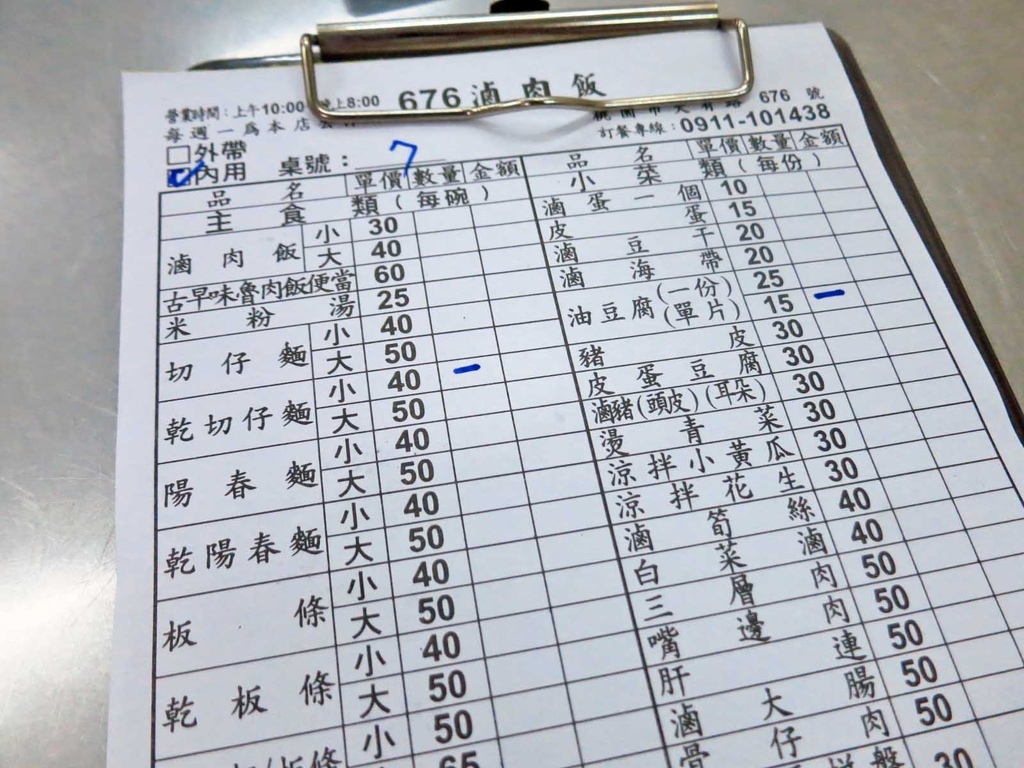 676滷肉飯
營業時間：上午10:00 晚上8:00
每週一為本店公休
676 號
訂餐專線：0911-101438
□外帶
☑內用 桌號： 7
品名 單價 數量 金額
主食類（每碗）
滷肉飯 小 30
大 40
古早味魯肉飯便當 60
米粉湯 25
切仔麵 小 40
大 50
乾切仔麵 小 40 一
大 50
陽春麵 小 40
大 50
乾陽春麵 小 40
大 50
板條 小 40
大 50
乾板條 小 40
大 50
小 50
65
品名 單價 數量 金額
小菜類（每份）
滷蛋一個 10
皮蛋 15
滷豆干 20
滷海帶 20
油豆腐 (一份) 25
(單片) 15 一
豬皮 30
皮蛋豆腐 30
滷豬(頭皮)(耳朵) 30
燙青菜 30
涼拌小黃瓜 30
涼拌花生 30
滷筍絲 40
白菜滷 40
三層肉 50
嘴邊肉 50
肝連 50
滷大腸 50
骨仔肉 50
30